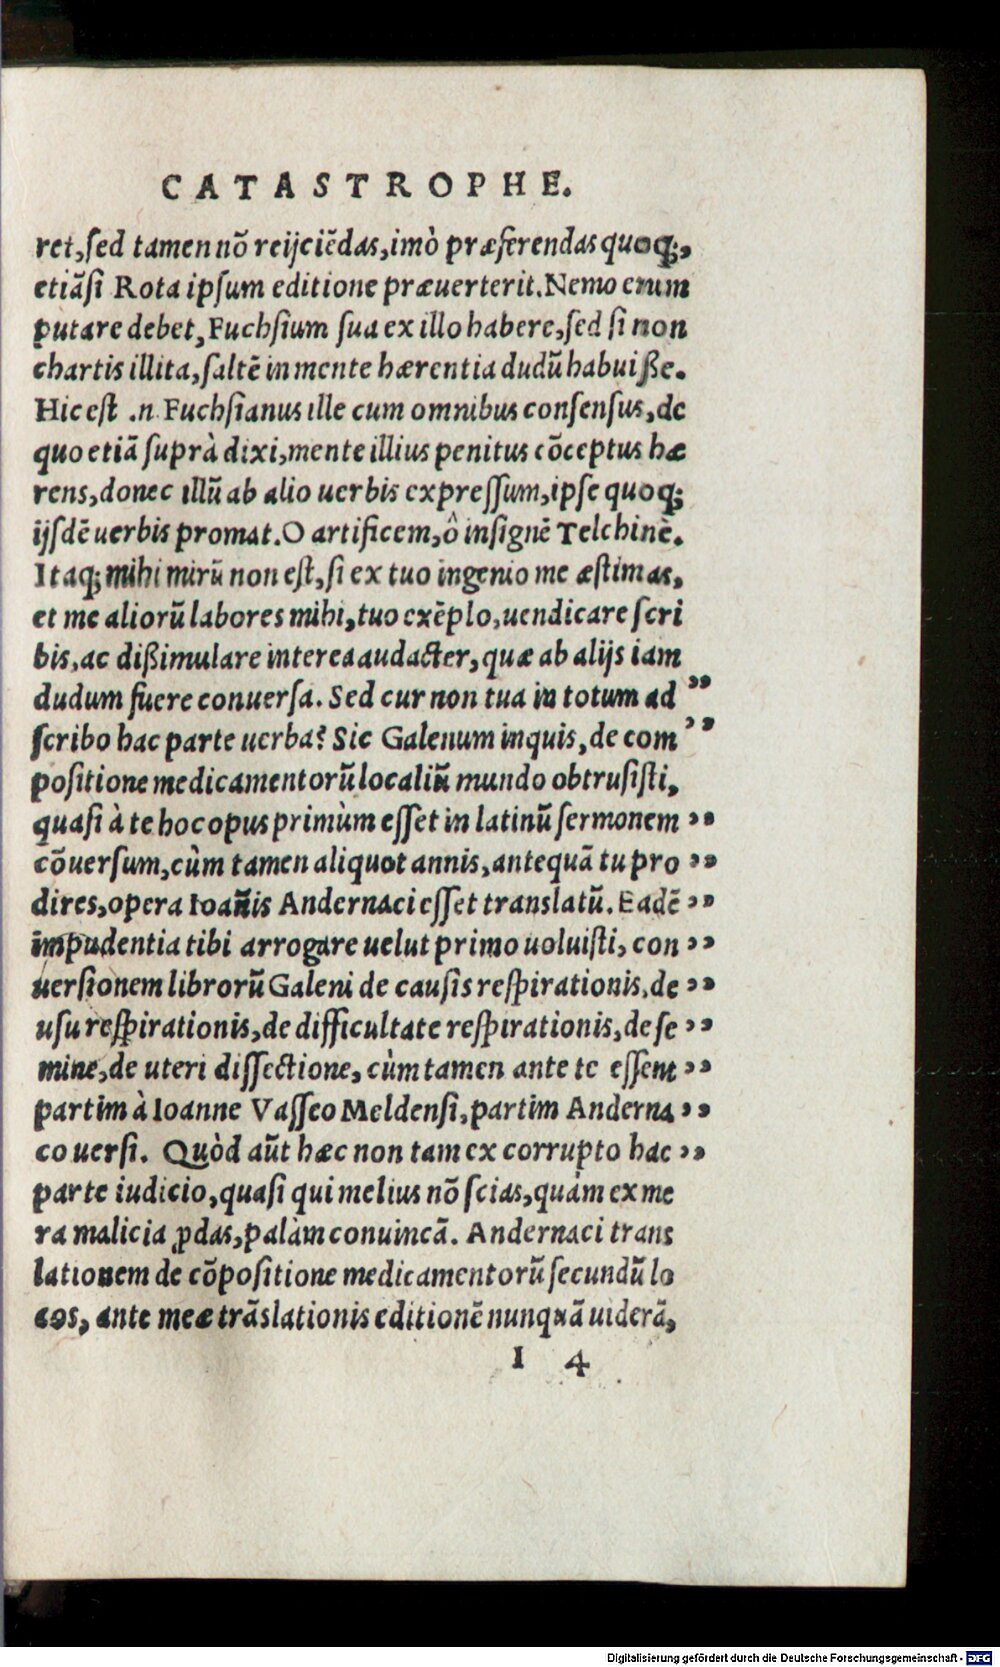 CATASTROPHE.
ret, ſed tamen nõ reijciẽdas, imò præferendas quoq;,
etiãſi Rota ipſum editione præuerterit. Nemo enim
putare debet, Fuchſium ſua ex illo habere, ſed ſi non
chartis illita, ſaltẽ in mente hærentia dudũ habuiſſe.
Hic eſt .n. Fuchſianus ille cum omnibus conſenſus, de
quo etiã ſuprà dixi, mente illius penitus cõceptus hæ
rens, donec illũ ab alio uerbis expreſſum, ipſe quoq;
ijſdẽ uerbis promat. O artificem, ô inſignẽ Telchinẽ.
Itaq; mihi mirũ non eſt, ſi ex tuo ingenio me æſtimas,
et me aliorũ labores mihi, tuo exẽplo, uendicare ſcri
bis, ac diſſimulare interea audacter, quæ ab alijs iam
dudum fuere conuerſa. Sed cur non tua in totum ad ”
ſcribo hac parte uerba? Sic Galenum inquis, de com ’’
poſitione medicamentorũ localiũ mundo obtruſiſti,
quaſi à te hoc opus primùm eſſet in latinũ ſermonem ”
cõuerſum, cùm tamen aliquot annis, antequã tu pro ”
dires, opera Ioañis Andernaci eſſet translatũ. Eadẽ ”
impudentia tibi arrogare uelut primo uoluiſti, con ”
uerſionem librorũ Galeni de cauſis reſpirationis, de ”
uſu reſpirationis, de difficultate reſpirationis, de ſe ”
mine, de uteri diſſectione, cùm tamen ante te eſſent ”
partim à Ioanne Vaſſeo Meldenſi, partim Anderna ”
co uerſi. Quòd aũt hæc non tam ex corrupto hac ”
parte iudicio, quaſi qui melius nõ ſcias, quàm ex me
ra malicia ꝓdas, palàm conuincã. Andernaci trans
lationem de cõpoſitione medicamentorũ ſecundũ lo
cos, ante meæ trãslationis editionẽ nunquã uiderã,
I 4
Digitalisierung gefördert durch die Deutsche Forschungsgemeinschaft - DFG